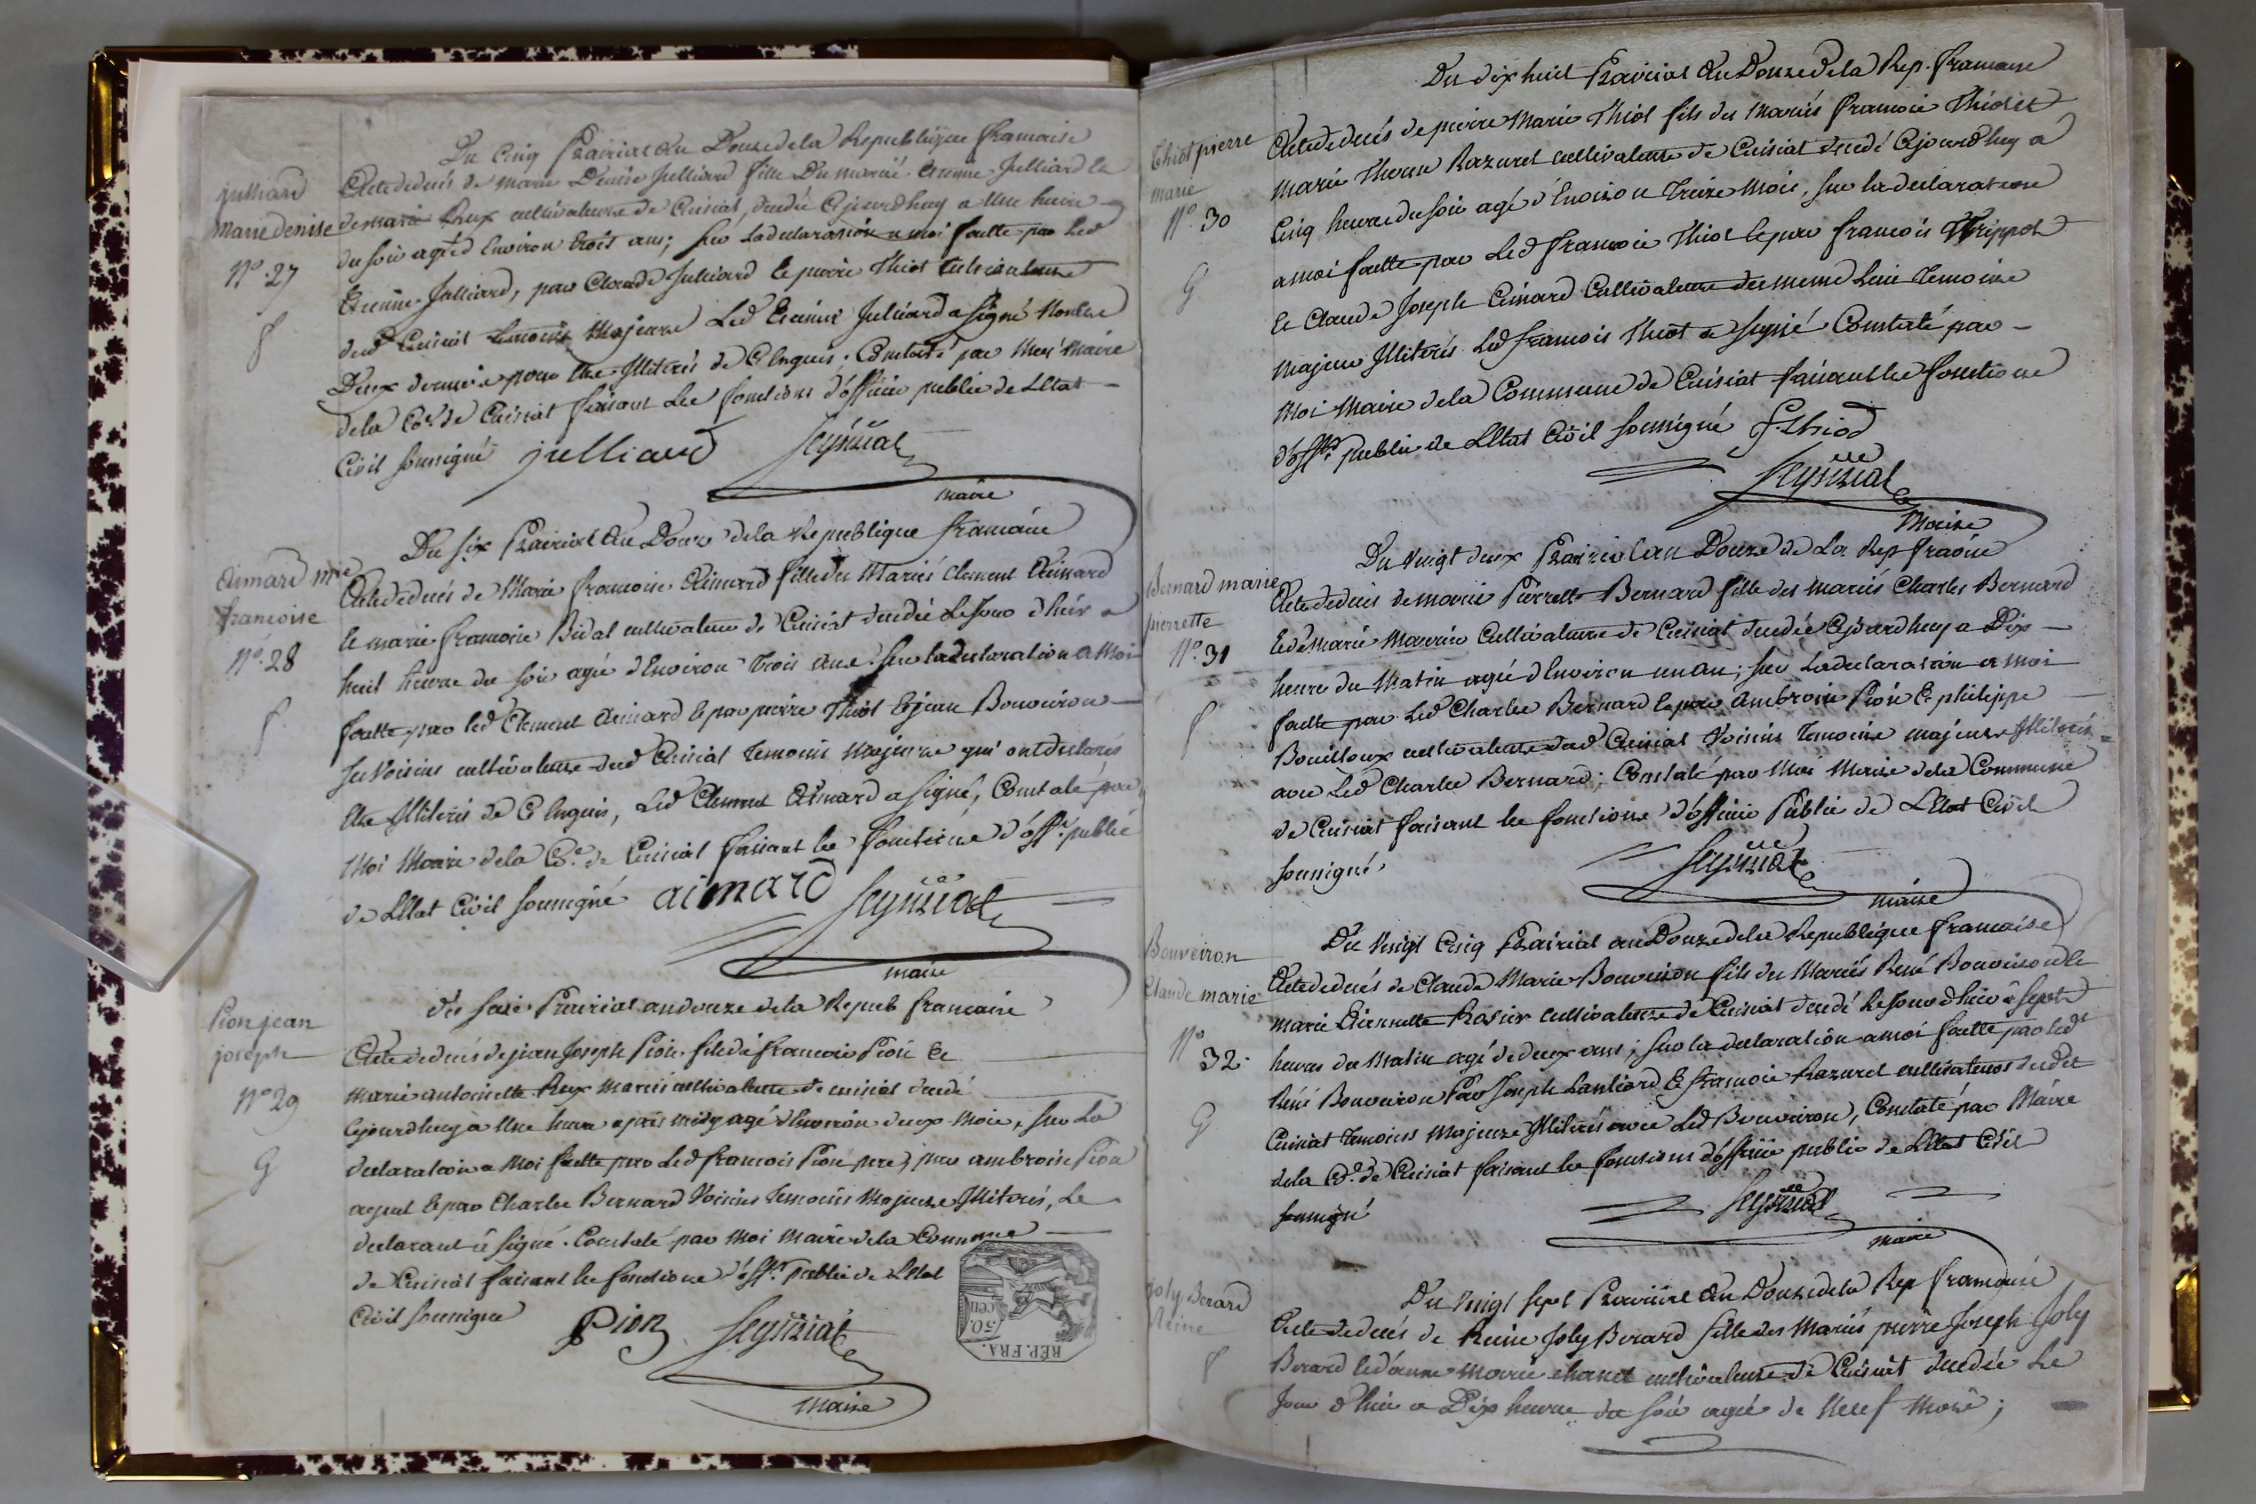 Du Cinq Prairial an Douze de la Republique francaise
julliard
marie denise
N.º 27
Acte de decés de marie Denise Julliard fille Du marié Etienne Julliard Et
de marie Reux cultivateurs de Cuisiat, decedée Ajourdhuy a Une heure
du soir agée d'Environ trois ans; sur la declaration a moi faitte par led
Etienne Julliard, par Claude Julliard Et pierre Thiot Cultivateurs
dud Cuisiat temoins Majeurs Led Etienne Julliard a signé Non les
Deux derniers pour Etre Illiterés de Ce Enquis; Constaté par Moi Maire
de la Cõe de Cuisiat faisant Les fonctions d'officier public de L'Etat
Civil soussigné julliard
maire
Du six Prairial An Douze de la Republique francaise
Aimard mie
francoise
Nº. 28
Acte de decés de Marie francoise Aimard fille des Mariés Clement Aimard
Et marie francoise Bidal cultivateurs de Cuisiat decedée Le Jour d'hier a
huit heures du soir agée d'Environ trois ans sur la declaration a Moi
faitte par led Clement Aimard Et par pierre Thiot Et jean Bouveiron
ses Voisins cultivateurs dud Cuisiat temoins majeurs qui ont declarés
Etre Illiterés de Ce Enquis, Led Clement Aimard a signé, Constaté par
Moi Maire de la Cõe de Cuisiat faisant les fonctions d'offer. public
de L'Etat Civil soussigné aimard
maire
du seize Prairial an douze de la Repub francaise
Pion jean
joseph
Nº 29
G
Acte de decés de jean Joseph Pion fils de francois Pion Et
Marie antoinette Reux Mariés cultivateurs de cuisiat decedé
Ajourdhuy a Une heure apres midy agé d'Environ deux Mois, sur La
declaration a Moi faitte par Led francois Pion pere, par ambroise Pion
ayeul Et par Charles Bernard Voisins temoins Majeurs Illiterés, Le
declarant a signé. Constaté par Moi Maire de la Commune
de Cuisiat faisant les fonctions d'offer. public de L'Etat
Civil soussigné Pion
maire
50. cen
REP. FRA.
Du dix huit Prairial An Douze de la Rep. francaise
Thiot pierre
marie
Nº. 30
G
Acte de decés de pierre Marie Thiot fils des Mariés francois Thiot Et
Marie Therese Razurel cultivateurs de Cuisiat decedé Ajourdhuy a
Cinq heures du soir agé d'Environ Treize Mois, sur la declaration
a moi faitte par Led francois Thiot Et par francois Trippoz
Et Claude Joseph Aimard Cultivateurs du meme Lieu temoins
majeurs Illiterés Led francois Thiot a signé Constaté par
Moi Maire de la Commune de Cuisiat faisant les fonctions
d'offer. public de L'Etat Civil soussigné f. thiod
Maire
Du vingt deux Prairial an Douze de La Rep fraõise
Bernard marie
pierrette
Nº. 31
Acte de decés de marie Pierrette Bernard fille des mariés Charles Bernard
Et de Marie Cultivateurs de Cuisiat decedée Ajourdhuy a Dix
heures du Matin agée d'Environ un an; sur La declaration a moi
faitte par Led Charles Bernard Et par Ambroise Pion Et philippe
Bouilloux cultivateurs dud Cuisiat Voisins temoins majeurs Illiterés
avec Led Charles Bernard; Constaté par Moi Maire de la Commune
de Cuisiat faisant les fonctions d'officier Public de L'Etat Civil
soussigné.
maire
Du Vingt Cinq Prairial an Douze de la Republique francaise
Bouveiron
Claude marie
Nº
32.
G
Acte de decés de Claude Marie Bouveiron fils des Mariés René Bouveiron Et
Marie Pierrette Rosier cultivateurs de Cuisiat decedé Le Jour d'hier a sept
heures du Matin agé de deux ans; sur la declaration a moi faitte par led
René Bouveiron Par Joseph Lantiard Et francois Razurel cultivateurs dudit
Cuisiat temoins Majeurs Illiterés avec Led Bouveiron, Constaté par Maire
de la Cõe de Cuisiat faisant les fonctions d'officier public de L'Etat Civil
soussigné
maire
Du Vingt Sept Prairial An Douze de la Rep francaise
Joly Berard
Reine
Acte de decés de Reine Joly Berard fille des Mariés pierre Joseph Joly
Berard Et d'anne Marie chanel cultivateurs de Cuisiat decedée Le
Jour d'hier a Dix heures du soir agée de Neuf Mois;